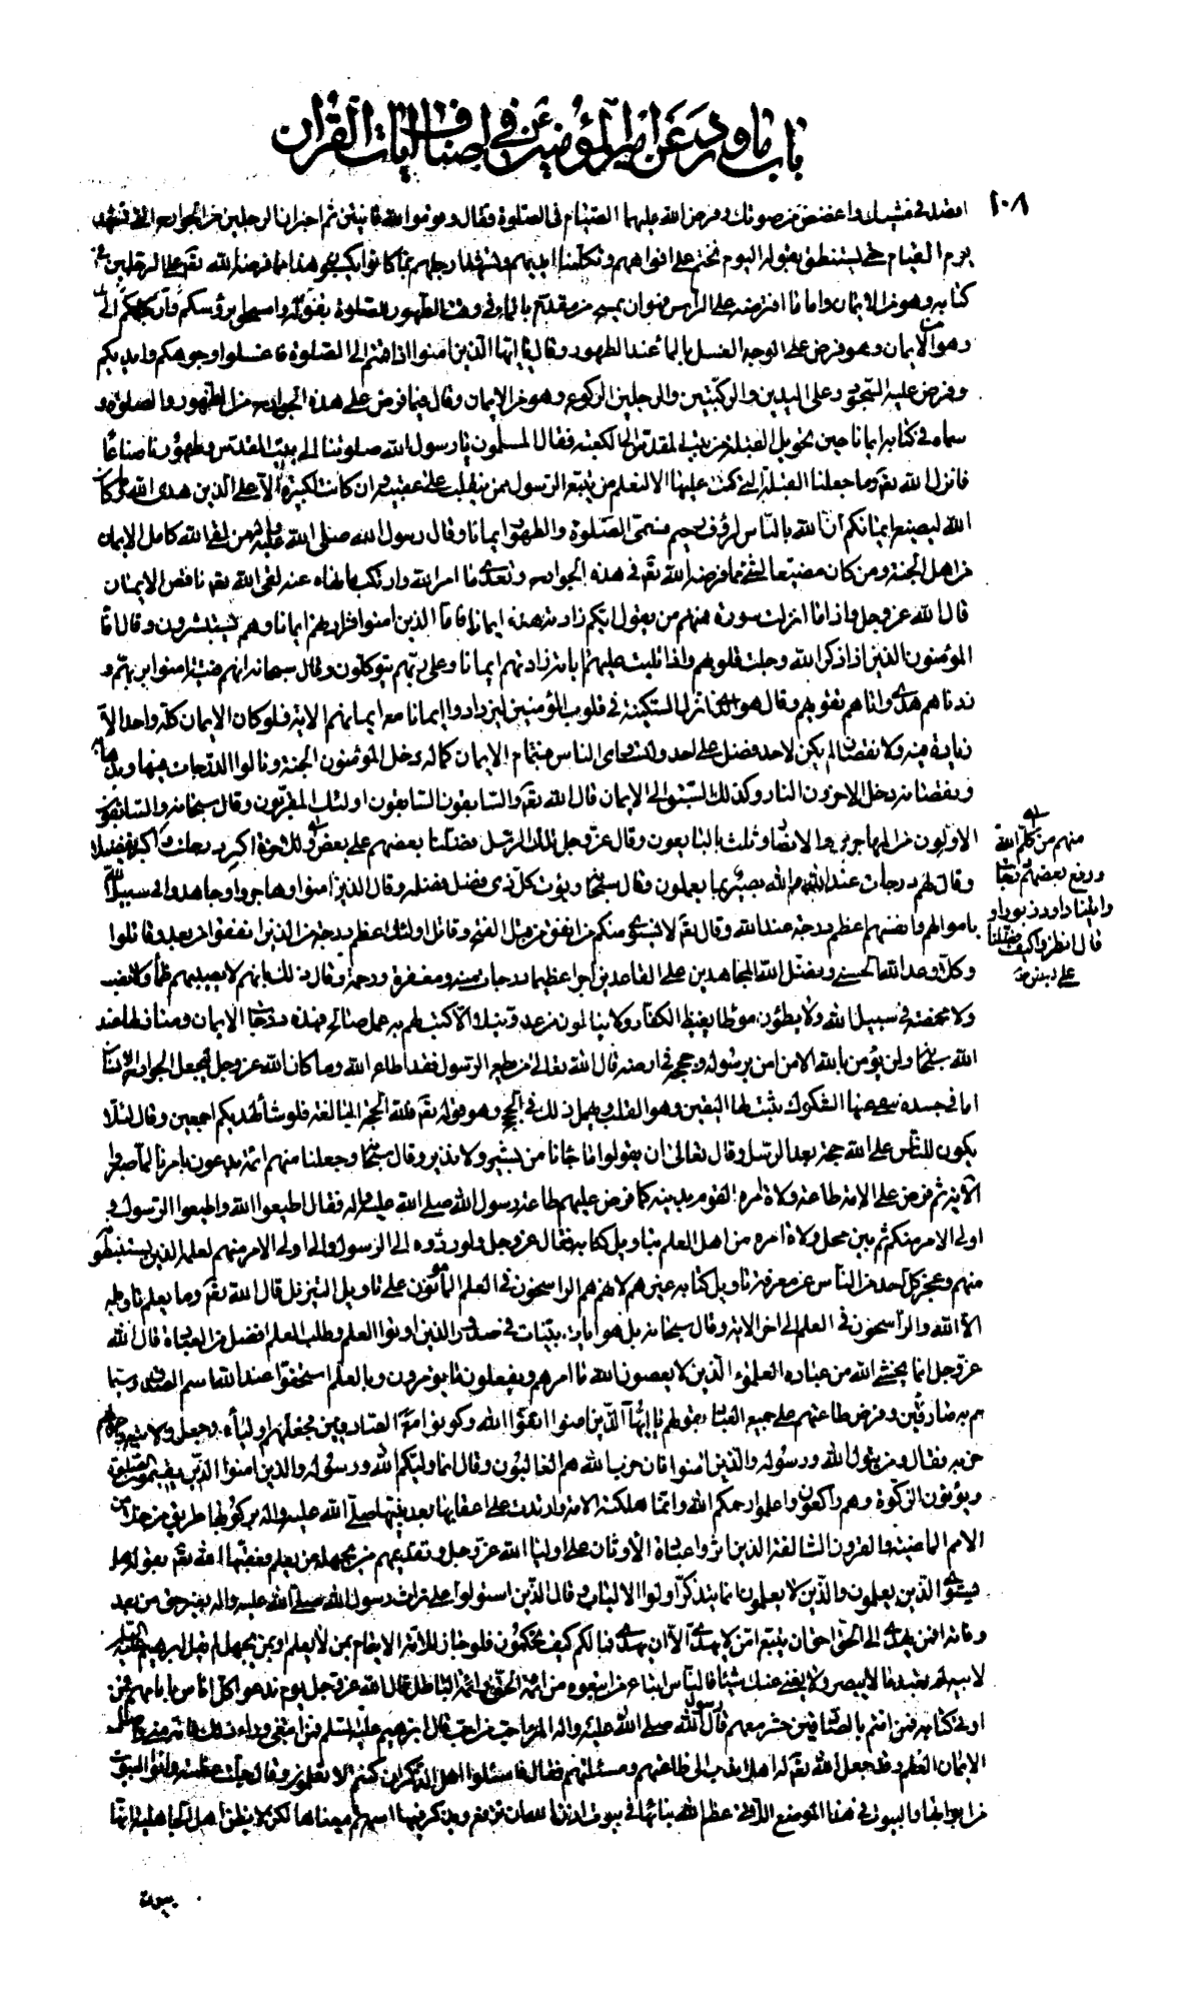 باب ما ورد عن امیر المؤمنین فی اصناف ایات القران
١٠٨
اقصد فی مشیك واغضض من صوتك وفرض الله علیهما القیام فی الصلوة فقال وقوموا لله قانتین ثم اخبر ان الرجلین من الجوارح التی تشهد
یوم القیامة حتی یستنطق بقوله الیوم نختم علی افواههم وتكلمنا ایدیهم وتشهد ارجلهم بما كانوا یكسبون وهذا مما فرضه الله تقه علی الرجلین فی
كتابه وهو من الایمان واما ما افترضه علی الراس فهو ان یمسح من مقدمه بالماء فی وقت الطهور للصلوة بقوله وامسحوا برؤسكم وارجلكم الی
وهو من الایمان وهو فرض علی الوجه الغسل بالماء عند الطهور وقال یا ایها الذین امنوا اذا قمتم الی الصلوة فاغسلوا وجوهكم وایدیكم
وفرض علیه السجود وعلی الیدین والركبتین والرجلین الركوع وهو من الایمان وقال فیما فرض علی هذه الجوارح من الطهور والصلوة و
سماه فی كتابه ایمانا حین تحویل القبلة من بیت المقدس الی الكعبة فقال المسلمون یا رسول الله صلوتنا الی بیت المقدس وطهورنا ضاعا
فانزل الله تقه وما جعلنا القبلة التی كنت علیها الا لنعلم من یتبع الرسول ممن ینقلب علی عقبیه وان كانت لكبیرة الا علی الذین هدی الله وما كان
الله لیضیع ایمانكم ان الله بالناس لرؤف رحیم فسمی الصلوة والطهور ایمانا وقال رسول الله صلی الله علیه واله من لقی الله كامل الایمان
من اهل الجنة ومن كان مضیعا لشیء مما فرضه الله تقه فی هذه الجوارح وتعدی ما امر الله وارتكب ما نهاه عنه لقی الله تقه ناقص الایمان
قال الله عز وجل واذا ما انزلت سورة فمنهم من یقول ایكم زادته هذه ایمانا فاما الذین امنوا فزادتهم ایمانا وهم یستبشرون وقال انما
المؤمنون الذین اذا ذكر الله وجلت قلوبهم واذا تلیت علیهم ایاته زادتهم ایمانا وعلی ربهم یتوكلون وقال سبحانه انهم فتیة امنوا بربهم و
زدناهم هدی واتاهم تقویهم وقال هو الذی انزل السكینة فی قلوب المؤمنین لیزدادوا ایمانا مع ایمانهم الایة فلو كان الایمان كله واحدا لا
زیادة فیه ولا نقصان لم یكن لاحد فضل علی احد ولتساوی الناس فبتمام الایمان وكماله دخل المؤمنون الجنة ونالوا الدرجات فیها وبذهابه
وبنقصانه دخل الاخرون النار وكذلك السبق الی الایمان قال الله تقه والسابقون السابقون اولئك المقربون وقال سبحانه والسابقون
الاولون من المهاجرین والانصار وثلث بالتابعون وقال عز وجل تلك الرسل فضلنا بعضهم علی بعض وللاخرة اكبر درجات واكبر تفضیلا
منهم من كلم الله
ورفع بعضهم درجات
واتینا داود زبورا و
قال انظر كیف فضلنا
علی بعض
وقال لهم درجات عند الله والله بصیر بما یعملون وقال سبحانه ویؤت كل ذی فضل فضله وقال الذین امنوا وهاجروا وجاهدوا فی سبیل الله
باموالهم وانفسهم اعظم درجة عند الله وقال تقه لا یستوی منكم من انفق من قبل الفتح وقاتل اولئك اعظم درجة من الذین انفقوا من بعد وقاتلوا
وكلا وعد الله الحسنی وفضل الله المجاهدین علی القاعدین اجرا عظیما درجات منه ومغفرة ورحمة وقال ذلك بانهم لا یصیبهم ظمأ ولا نصب
ولا مخمصة فی سبیل الله ولا یطئون موطئا یغیظ الكفار ولا ینالون من عدو نیلا الا كتب لهم به عمل صالح فهذه درجات الایمان ومنازلها عند
الله سبحانه ولن یؤمن بالله الا من امن برسوله وحججه فی ارضه قال الله تعالی من یطع الرسول فقد اطاع الله وما كان الله عز وجل لیجعل لجوارح الانسان
اماما فی جسده ینفی عنها الشكوك یثبت لها الیقین وهو القلب ویهمل ذلك فی الحجج وهو قوله تقه فلله الحجة البالغة فلو شاء لهدیكم اجمعین وقال لئلا
یكون للناس علی الله حجة بعد الرسل وقال تعالی ان یقولوا ما جائنا من بشیر ولا نذیر وقال سبحانه وجعلنا منهم ائمة یهدون بامرنا لما صبروا
الایة ثم فرض علی الامة طاعة ولاة امره القوام بدینه كما فرض علیهم طاعة رسول الله صلی الله علیه واله فقال اطیعوا الله واطیعوا الرسول و
اولی الامر منكم ثم بین محل ولاة امره من اهل العلم بتاویل كتابه فقال عز وجل ولو ردوه الی الرسول والی اولی الامر منهم لعلمه الذین یستنبطونه
منهم وعجز كل احد من الناس عن معرفة تاویل كتابه غیرهم لانهم هم الراسخون فی العلم المامونون علی تاویل التنزیل قال الله تقه وما یعلم تاویله
الا الله والراسخون فی العلم الی اخر الایة وقال سبحانه بل هو ایات بینات فی صدور الذین اوتوا العلم وطلب العلم افضل من العبادة قال الله
عز وجل انما یخشی الله من عباده العلمؤا الذین لا یعصون الله ما امرهم ویفعلون ما یؤمرون وبالعلم استحقوا عند الله اسم الصدق وسما
هم به صادقین وفرض طاعتهم علی جمیع العباد بقوله یا ایها الذین امنوا اتقوا الله وكونوا مع الصادقین فجعلهم اولیاءه وجعل ولایتهم ولایته وحزبهم
حزبه فقال ومن یتول الله ورسوله والذین امنوا فان حزب الله هم الغالبون وقال انما ولیكم الله ورسوله والذین امنوا الذین یقیمون الصلوة
ویؤتون الزكوة وهم راكعون واعلموا رحمكم الله وانما هلكت الامة وارتدت علی اعقابها بعد نبیها صلی الله علیه واله بركوبها طریق من خلا من
الامم الماضیة والقرون السالفة الذین اثروا عبادة الاوثان علی اولیاء الله عز وجل وتقدیمهم من یجهل علی من یعلم فعنفها الله تقه بقوله هل
یستوی الذین یعلمون والذین لا یعلمون انما یتذكر اولوا الالباب وقال الذین استولوا علی تراث رسول الله صلی الله علیه واله بغیر حق من بعد
وفاته افمن یهدی الی الحق احق ان یتبع امن لا یهدی الا ان یهدی فما لكم كیف تحكمون فلو جاز للامة الایتمام بمن لا یعلم او بمن یجهل لم یقل ابرهیم علیه السلام
لابیه لم تعبد ما لا یبصر ولا یغنی عنك شیئا فالناس اتباع من اتبعوه من ائمة الحق وائمة الباطل قال الله عز وجل یوم ندعو كل اناس بامامهم فمن
اوتی كتابه فمن ائتم بالصادقین حشر معهم قال رسول الله صلی الله علیه واله المرء مع من احب قال ابرهیم علیه السلم فمن تبعنی فانه منی واصل
الایمان العلم وقد جعل الله تقه له اهلا ندب الی طاعتهم ومسئلتهم فقال فاسئلوا اهل الذكر ان كنتم لا تعلمون وقال جلت عظمته واتوا البیوت
من ابوابها والبیوت فی هذا الموضع اللاتی عظم الله بنائها فی بیوت اذن الله ان ترفع ویذكر فیها اسمه ثم بین معناها لكی لا یظن اهل الجاهلیة انها
بیوت